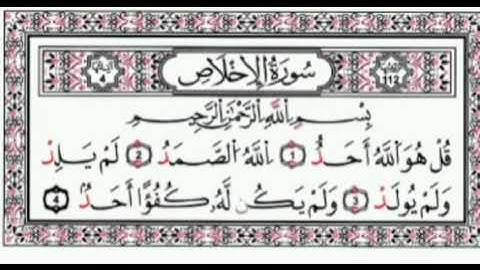 112 سُورَةُ الإِخْلَاصِ 4
بِسْمِ اللَّهِ الرَّحْمَٰنِ الرَّحِيمِ
قُلْ هُوَ اللَّهُ أَحَدٌ 1 اللَّهُ الصَّمَدُ 2 لَمْ يَلِدْ
وَلَمْ يُولَدْ 3 وَلَمْ يَكُن لَّهُۥ كُفُوًا أَحَدٌۢ 4